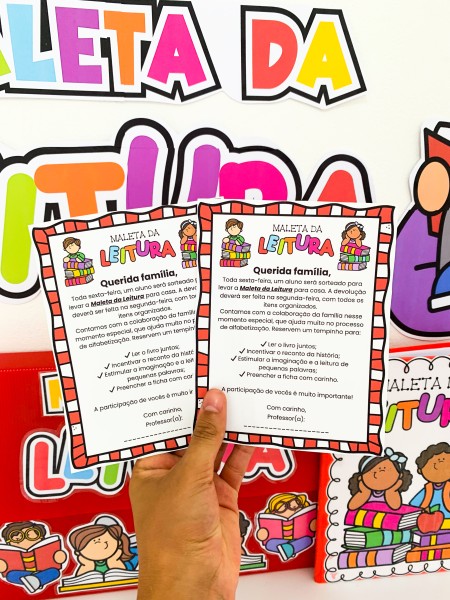 MALETA DA
LEITURA
MALETA DA
LEITURA
Querida família,
Toda sexta-feira, um aluno será sorteado p
levar a Maleta da Leitura para casa. A devol
deverá ser feita na segunda-feira, com todos
itens organizados.
Contamos com a colaboração da família
momento especial, que ajuda muito no p
de alfabetização. Reservem um tempinho
✓ Ler o livro juntos;
✓ Incentivar o reconto da histó
✓ Estimular a imaginação e a leit
pequenas palavras;
✓ Preencher a ficha com carin
A participação de vocês é muito
Com carinho,
Professor(a):
MALETA DA
LEITURA
Querida família,
Toda sexta-feira, um aluno será sorteado para
levar a Maleta da Leitura para casa. A devolução
deverá ser feita na segunda-feira, com todos os
itens organizados.
Contamos com a colaboração da família nesse
momento especial, que ajuda muito no processo
de alfabetização. Reservem um tempinho para:
✓ Ler o livro juntos;
✓ Incentivar o reconto da história;
✓ Estimular a imaginação e a leitura de
pequenas palavras;
✓ Preencher a ficha com carinho.
A participação de vocês é muito importante!
Com carinho,
Professor(a):
MALETA DA
LEITU